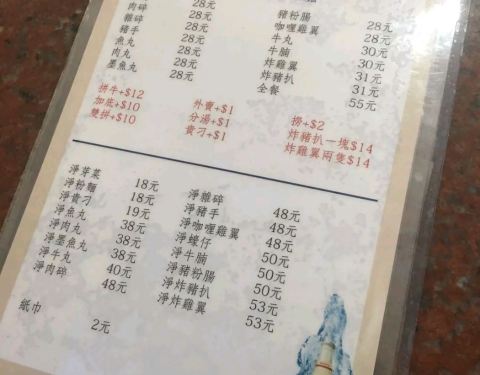 28元
肉碎 28元
雜碎 28元
豬手 28元
魚丸 28元
肉丸 28元
墨魚丸 28元
豬粉腸 28元
咖喱雞翼 28元
牛丸 30元
牛腩 30元
炸雞翼 31元
炸豬扒 31元
全餐 55元
拼牛+$12
加底+$10
雙拼+$10
外賣+$1
分湯+$1
貴刁+$1
撈+$2
炸豬扒一塊$14
炸雞翼兩隻$14
淨芽菜 18元
淨粉麵 18元
淨貴刁 19元
淨魚丸 38元
淨肉丸 38元
淨墨魚丸 38元
淨牛丸 40元
淨肉碎 48元
淨雜碎 48元
淨豬手 48元
淨咖喱雞翼 48元
淨蠔仔 50元
淨牛腩 50元
淨豬粉腸 50元
淨炸豬扒 53元
淨炸雞翼 53元
紙巾 2元